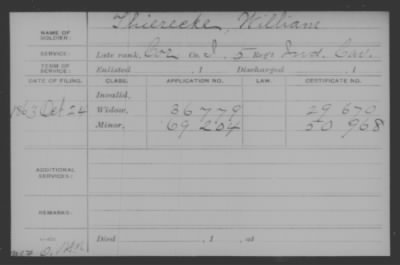 NAME OF SOLDIER: Thierecke, William
SERVICE: Late rank, Cor Co. I, 5 Reg't Ind. Cav.
TERM OF SERVICE: Enlisted , 1 Discharged , 1
DATE OF FILING. CLASS. APPLICATION NO. LAW. CERTIFICATE NO.
Invalid,
1863 Oct 24 Widow, 36 779 29 670
Minor, 69 204 50 968
ADDITIONAL SERVICES:
REMARKS:
Died , 1 , at